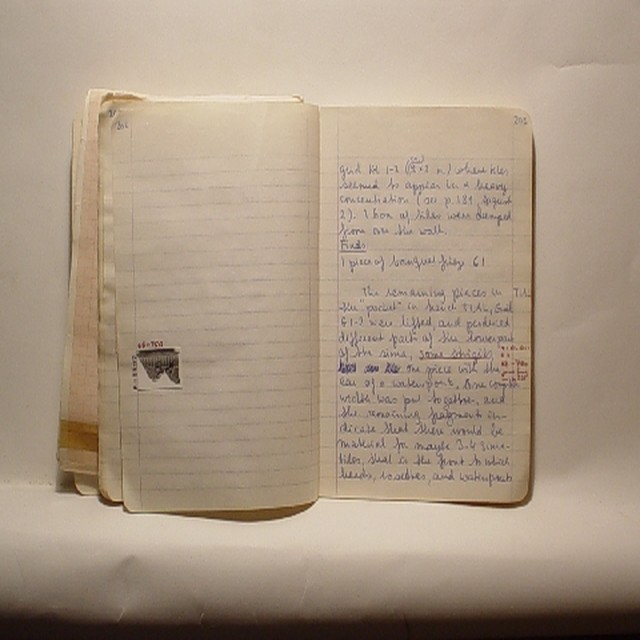 204
205
grid 1-2 (2 x 3 m.) where tiles
seemed to appear in a heavy
concentration (see p. 189,
2). 1 box of tiles were dumped
from over the wall.
Finds
1 piece of banquet frieze 61
The remaining pieces in
the "pocket" in
1-2 were lifted, and produced
different parts of the lower part
of the sima,
One piece with the
ear of a waterspout. One complete
was put together, and
the remaining fragments in-
dicate that there would be
material for maybe 3-4 sima-
tiles, that is the front to which
heads, rosettes, and waterspouts